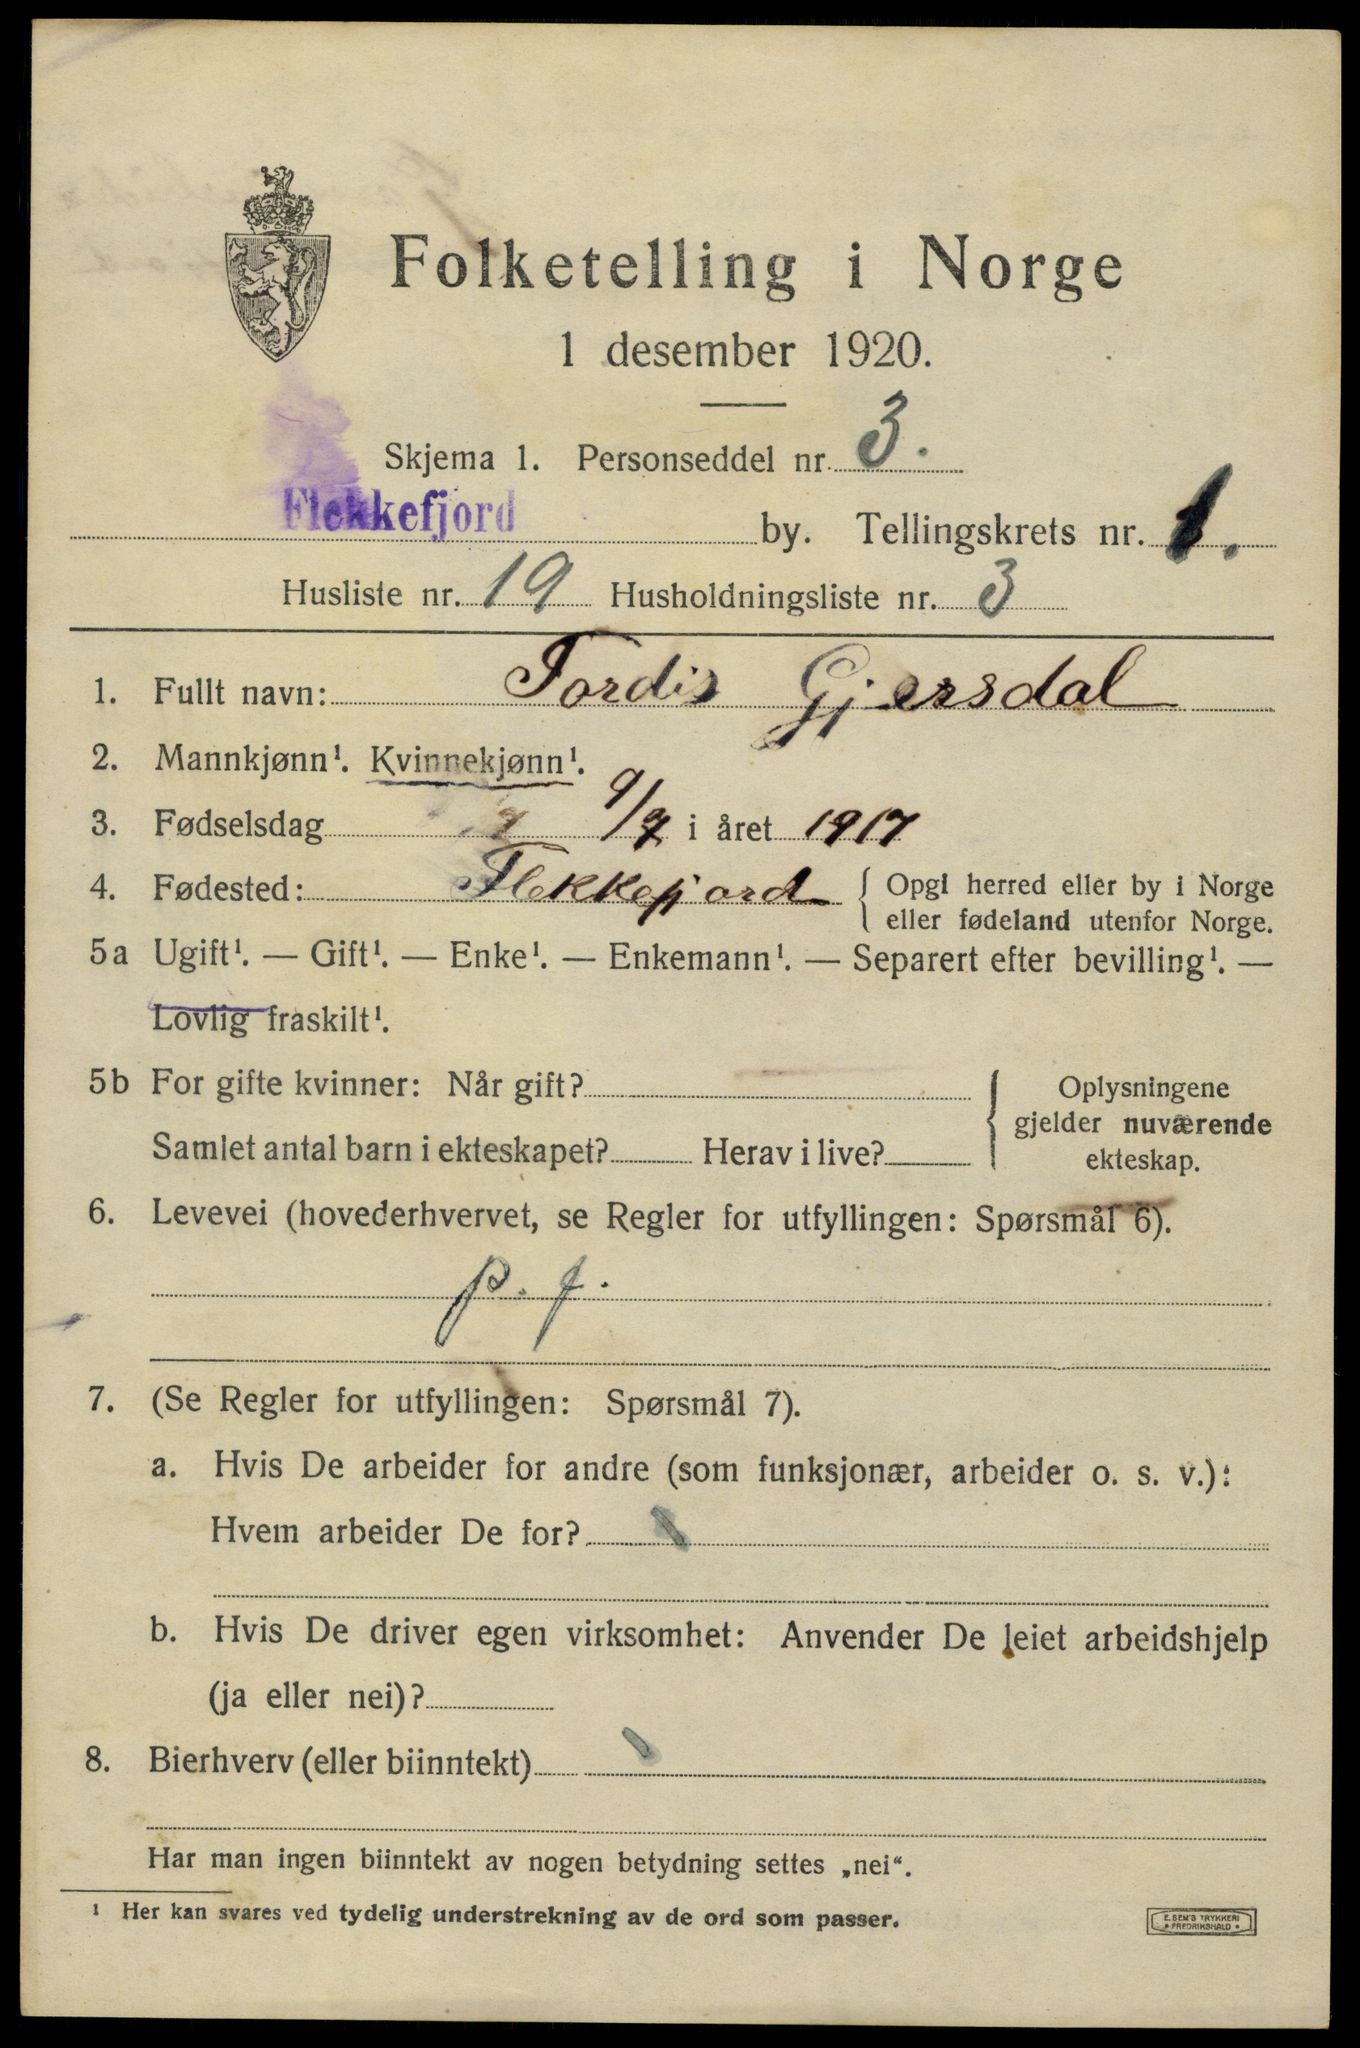 Folketelling i Norge
1 desember 1920.
Skjema 1. Personseddel nr. 3.
Flekkefjord by. Tellingskrets nr. 1.
Husliste nr. 19 Husholdningsliste nr. 3
1. Fullt navn: Tordis Gjersdal
2. Mannkjønn¹. Kvinnekjønn¹.
3. Fødselsdag 9/7 i året 1917
4. Fødested: Flekkefjord { Opgi herred eller by i Norge
eller fødeland utenfor Norge.
5a Ugift¹. — Gift¹. — Enke¹. — Enkemann¹. — Separert efter bevilling¹. —
Lovlig fraskilt¹.
5b For gifte kvinner: Når gift? { Oplysningene
gjelder nuværende
Samlet antal barn i ekteskapet? Herav i live? ekteskap.
6. Levevei (hovederhvervet, se Regler for utfyllingen: Spørsmål 6).
p. f.
7. (Se Regler for utfyllingen: Spørsmål 7).
a. Hvis De arbeider for andre (som funksjonær, arbeider o. s. v.):
Hvem arbeider De for?
b. Hvis De driver egen virksomhet: Anvender De leiet arbeidshjelp
(ja eller nei)?
8. Bierhverv (eller biinntekt)
Har man ingen biinntekt av nogen betydning settes „nei“.
¹ Her kan svares ved tydelig understrekning av de ord som passer.
E. SEM'S TRYKKERI
* FREDRIKSHALD *